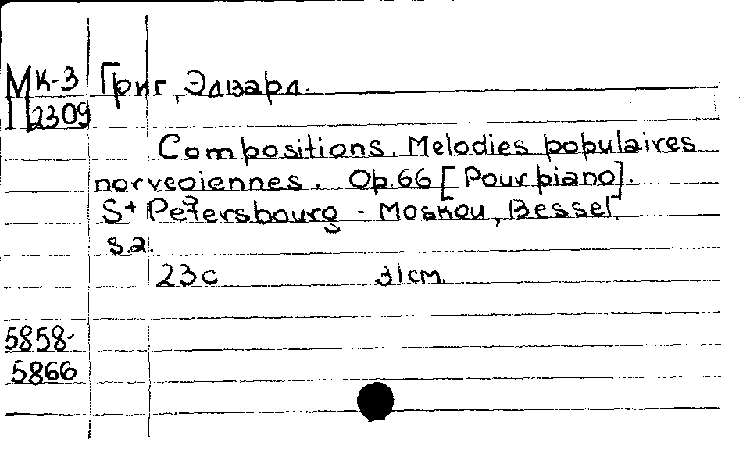 МК-3 Григ, Эдвард.
П2309
Compositions. Melodies populaires
norvegiennes. Op.66 [Pour piano].
St Petersbourg - Moskou, Bessel,
s.a.
23с 31см.
5858-
5866